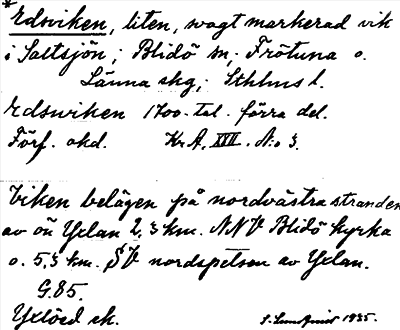 *Edsviken, liten, svagt markerad vik
i Saltsjön; Blidö sn; Frötuna o.
Länna skg; Sthlms l.
Edsviken 1700-tal. förra del.
Förf. okd. Kr.A. XVII. N:o 3.
Viken belägen på nordvästra stranden
av ön Yxlan 2,3 km. NNV Blidö kyrka
o. 5,3 km. SV nordspetsen av Yxlan.
G.85.
Yxlöed ek. 1935.